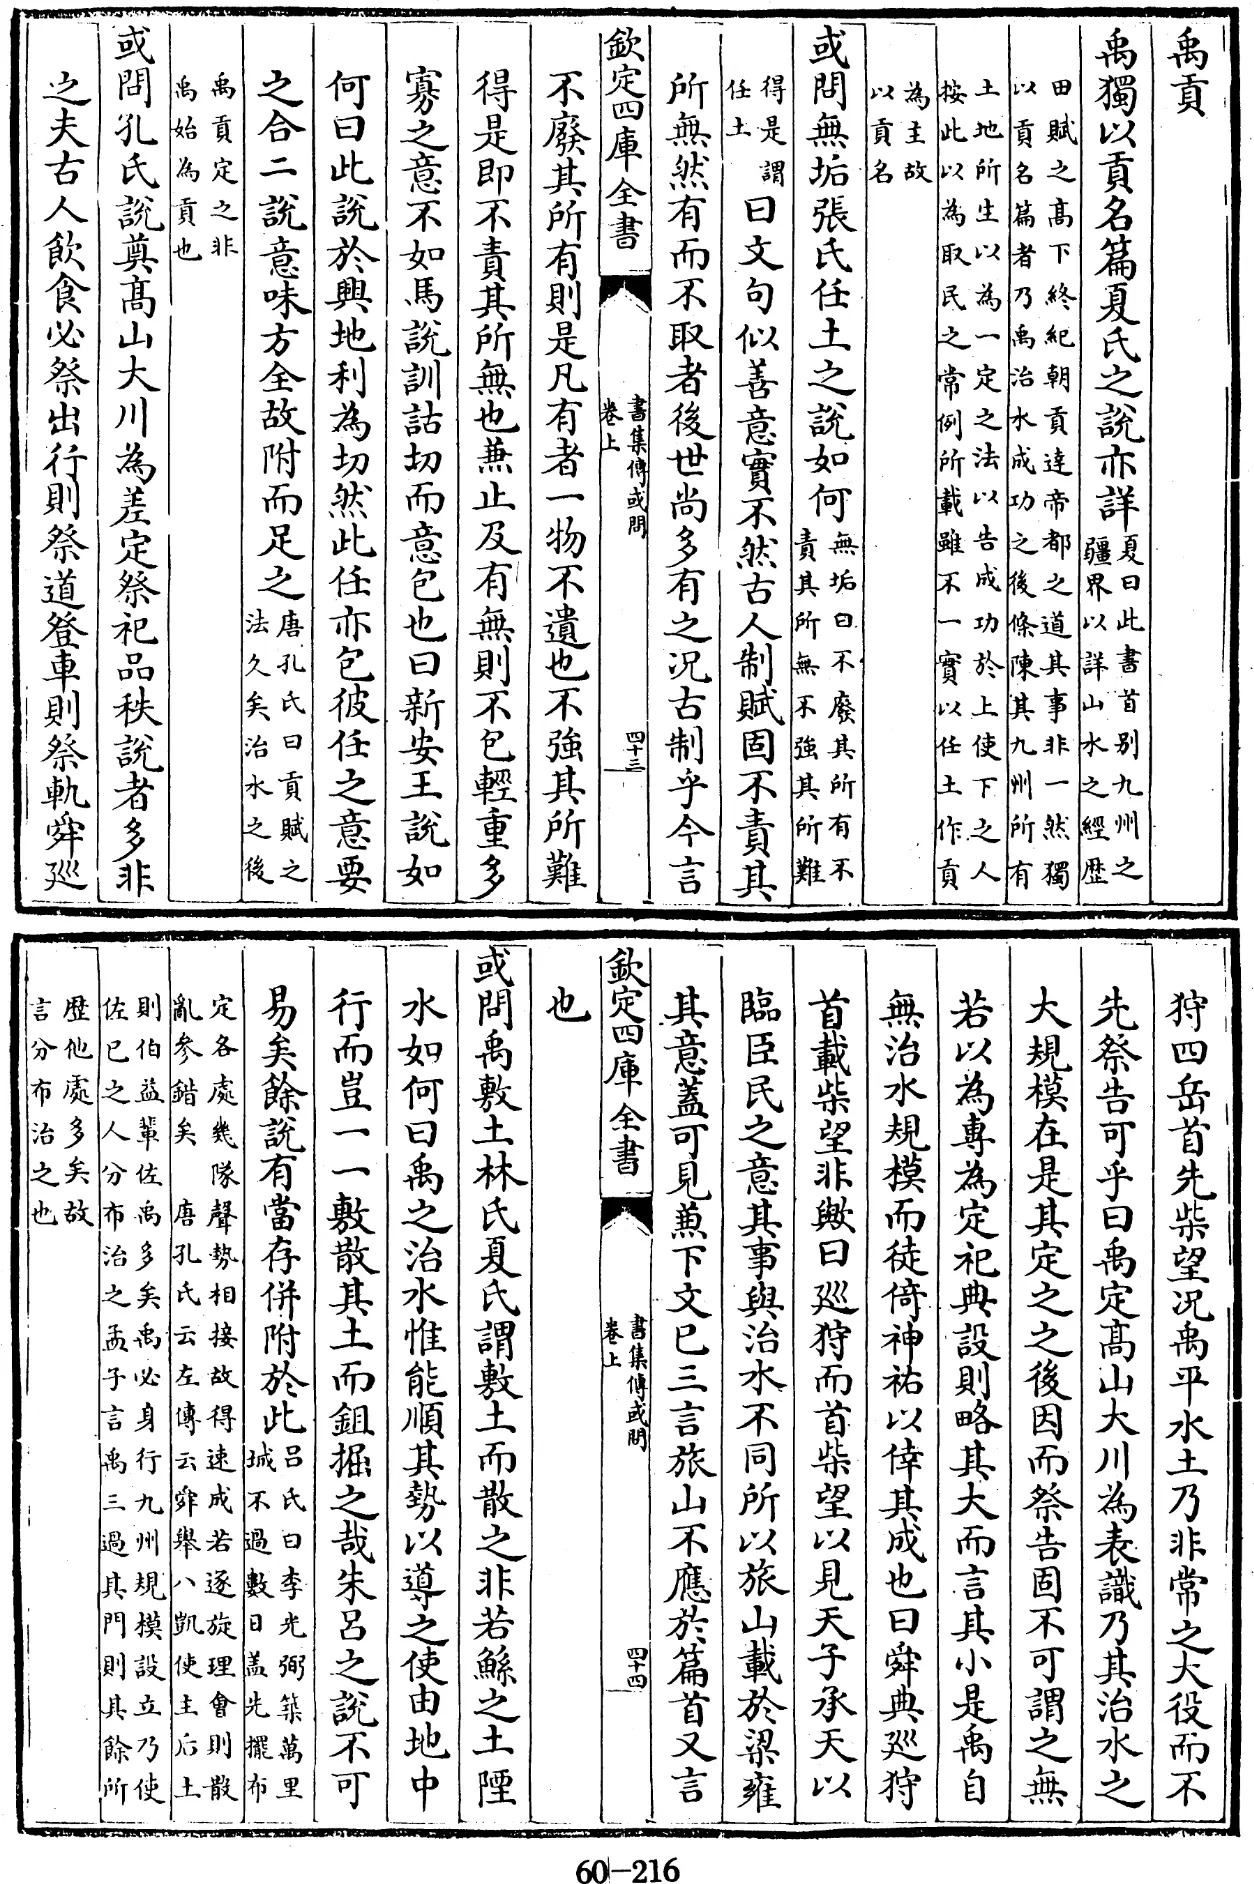 禹貢
禹獨以貢名篇夏氏之說亦詳夏曰此書首别九州之
疆界以詳山水之經歴
田賦之髙下終紀朝貢達帝都之道其事非一然獨
以貢名篇者乃禹治水成功之後條陳其九州所有
土地所生以為一定之法以告成功於上使下之人
按此以為取民之常例所載雖不一實以任土作貢
為主故
以貢名
或問無垢張氏任土之說如何無垢曰不廢其所有不
責其所無不強其所難
得是謂
任土
曰文句似善意實不然古人制賦固不責其
所無然有而不取者後世尚多有之况古制乎今言
欽定四庫全書
書集傳或問
卷上
四十三
不廢其所有則是凡有者一物不遺也不強其所難
得是即不責其所無也兼止及有無則不包輕重多
寡之意不如馬說訓詁切而意包也曰新安王說如
何曰此說於興地利為切然此任亦包彼任之意要
之合二說意味方全故附而足之唐孔氏曰貢賦之
法久矣治水之後
禹貢定之非
禹始為貢也
或問孔氏說奠髙山大川為差定祭祀品秩說者多非
之夫古人飲食必祭出行則祭道登車則祭軌舜廵
狩四岳首先柴望况禹平水土乃非常之大役而不
先祭告可乎曰禹定髙山大川為表識乃其治水之
大規模在是其定之之後因而祭告固不可謂之無
若以為專為定祀典設則略其大而言其小是禹自
無治水規模而徒倚神祐以倖其成也曰舜典廵狩
首載柴望非歟曰廵狩而首柴望以見天子承天以
臨臣民之意其事與治水不同所以旅山載於梁雍
其意蓋可見兼下文已三言旅山不應於篇首又言
欽定四庫全書
書集傳或問
卷上
四十四
也
或問禹敷土林氏夏氏謂敷土而散之非若鯀之土陻
水如何曰禹之治水惟能順其勢以導之使由地中
行而豈一一敷散其土而鉏掘之哉朱呂之說不可
易矣餘說有當存併附於此呂氏曰李光弼築萬里
城不過數日盖先擺布
定各處幾隊聲勢相接故得速成若逐旋理會則散
亂參錯矣　唐孔氏云左傳云舜舉八凱使主后土
則伯益輩佐禹多矣禹必身行九州規模設立乃使
佐已之人分布治之孟子言禹三過其門則其餘所
歴他處多矣故
言分布治之也
60-216